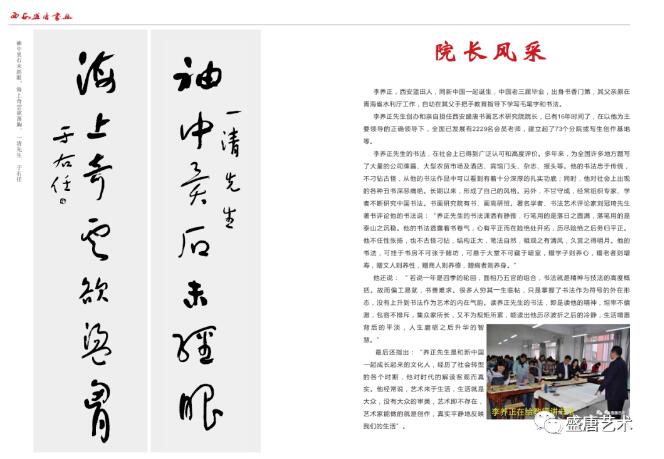 西安盛唐书画
袖中异石未经眼
海上奇云欲荡胸
一清先生
于右任
院长风采
李养正，西安蓝田人，同新中国一起诞生，中国老三届毕业，出身书香门第，其父亲原在
青海省水利厅工作，自幼在其父手把手教育指导下学写毛笔字和书法。
李养正先生创办和亲自担任西安盛唐书画艺术研究院院长，已有16年时间了，在以他为主
要领导的正确领导下，全国已发展有2229名会员老师，建立起了73个分院或写生创作基地
等。
李养正先生的书法，在社会上已得到广泛认可和高度评价。多年来，为全国许多地方题写
了大量的公司牌匾、大型农贸市场及酒店、宾馆门头、杂志、报头等。他的书法忠于传统，
不刁钻古怪，从他的书法作品中可以看到有着十分深厚的扎实功底；同时，他对社会上出现
的各种丑书深恶痛绝。长期以来，形成了自己的风格。另外，不甘守成，经常组织专家、学
者不断研究中国书法。书画研究院有书、画高研班。著名学者、书法艺术评论家刘冠琦先生
著书评论他的书法说：“养正先生的书法潇洒有静雅，行笔用的是落日之圆满，落笔用的是
泰山之沉稳。他的书法透露着书卷气，心有平正而在险绝处开拓，历尽险绝之后务归平正。
他不任性张扬，也不古怪刁钻，结构正大，笔法自然，粗观之有清风，久赏之得明月。他的
书法，可挂于书房不可张于赌坊，可悬于大堂不可藏于暗室，赠学子则养心，赠老者则增
寿，赠文人则养性，赠商人则养德，赠病者则养身。”
他还说：“若说一年是四季的轮回，面相乃五官的组合，书法就是精神与技法的高度概
括。故而偏工易就，书贵难求。很多人穷其一生临帖，只是掌握了书法作为符号的外在形
态，没有上升到书法作为艺术的内在气韵。读养正先生的书法，即是读他的精神，坦率不偏
激，包容不排斥，集众家所长，又不为规矩所累，能读出他历尽波折之后的冷静，生活喧嚣
背后的平淡，人生磨砺之后升华的智
慧。”
最后还指出：“养正先生是和新中国
一起成长起来的文化人，经历了社会转型
的各个时期，他对时代的解读客观而真
实。他经常说，艺术来于生活，生活就是
大众，没有大众的审美，艺术即不存在，
艺术家能做的就是创作，真实平静地反映
我们的生活”。
盛唐艺术